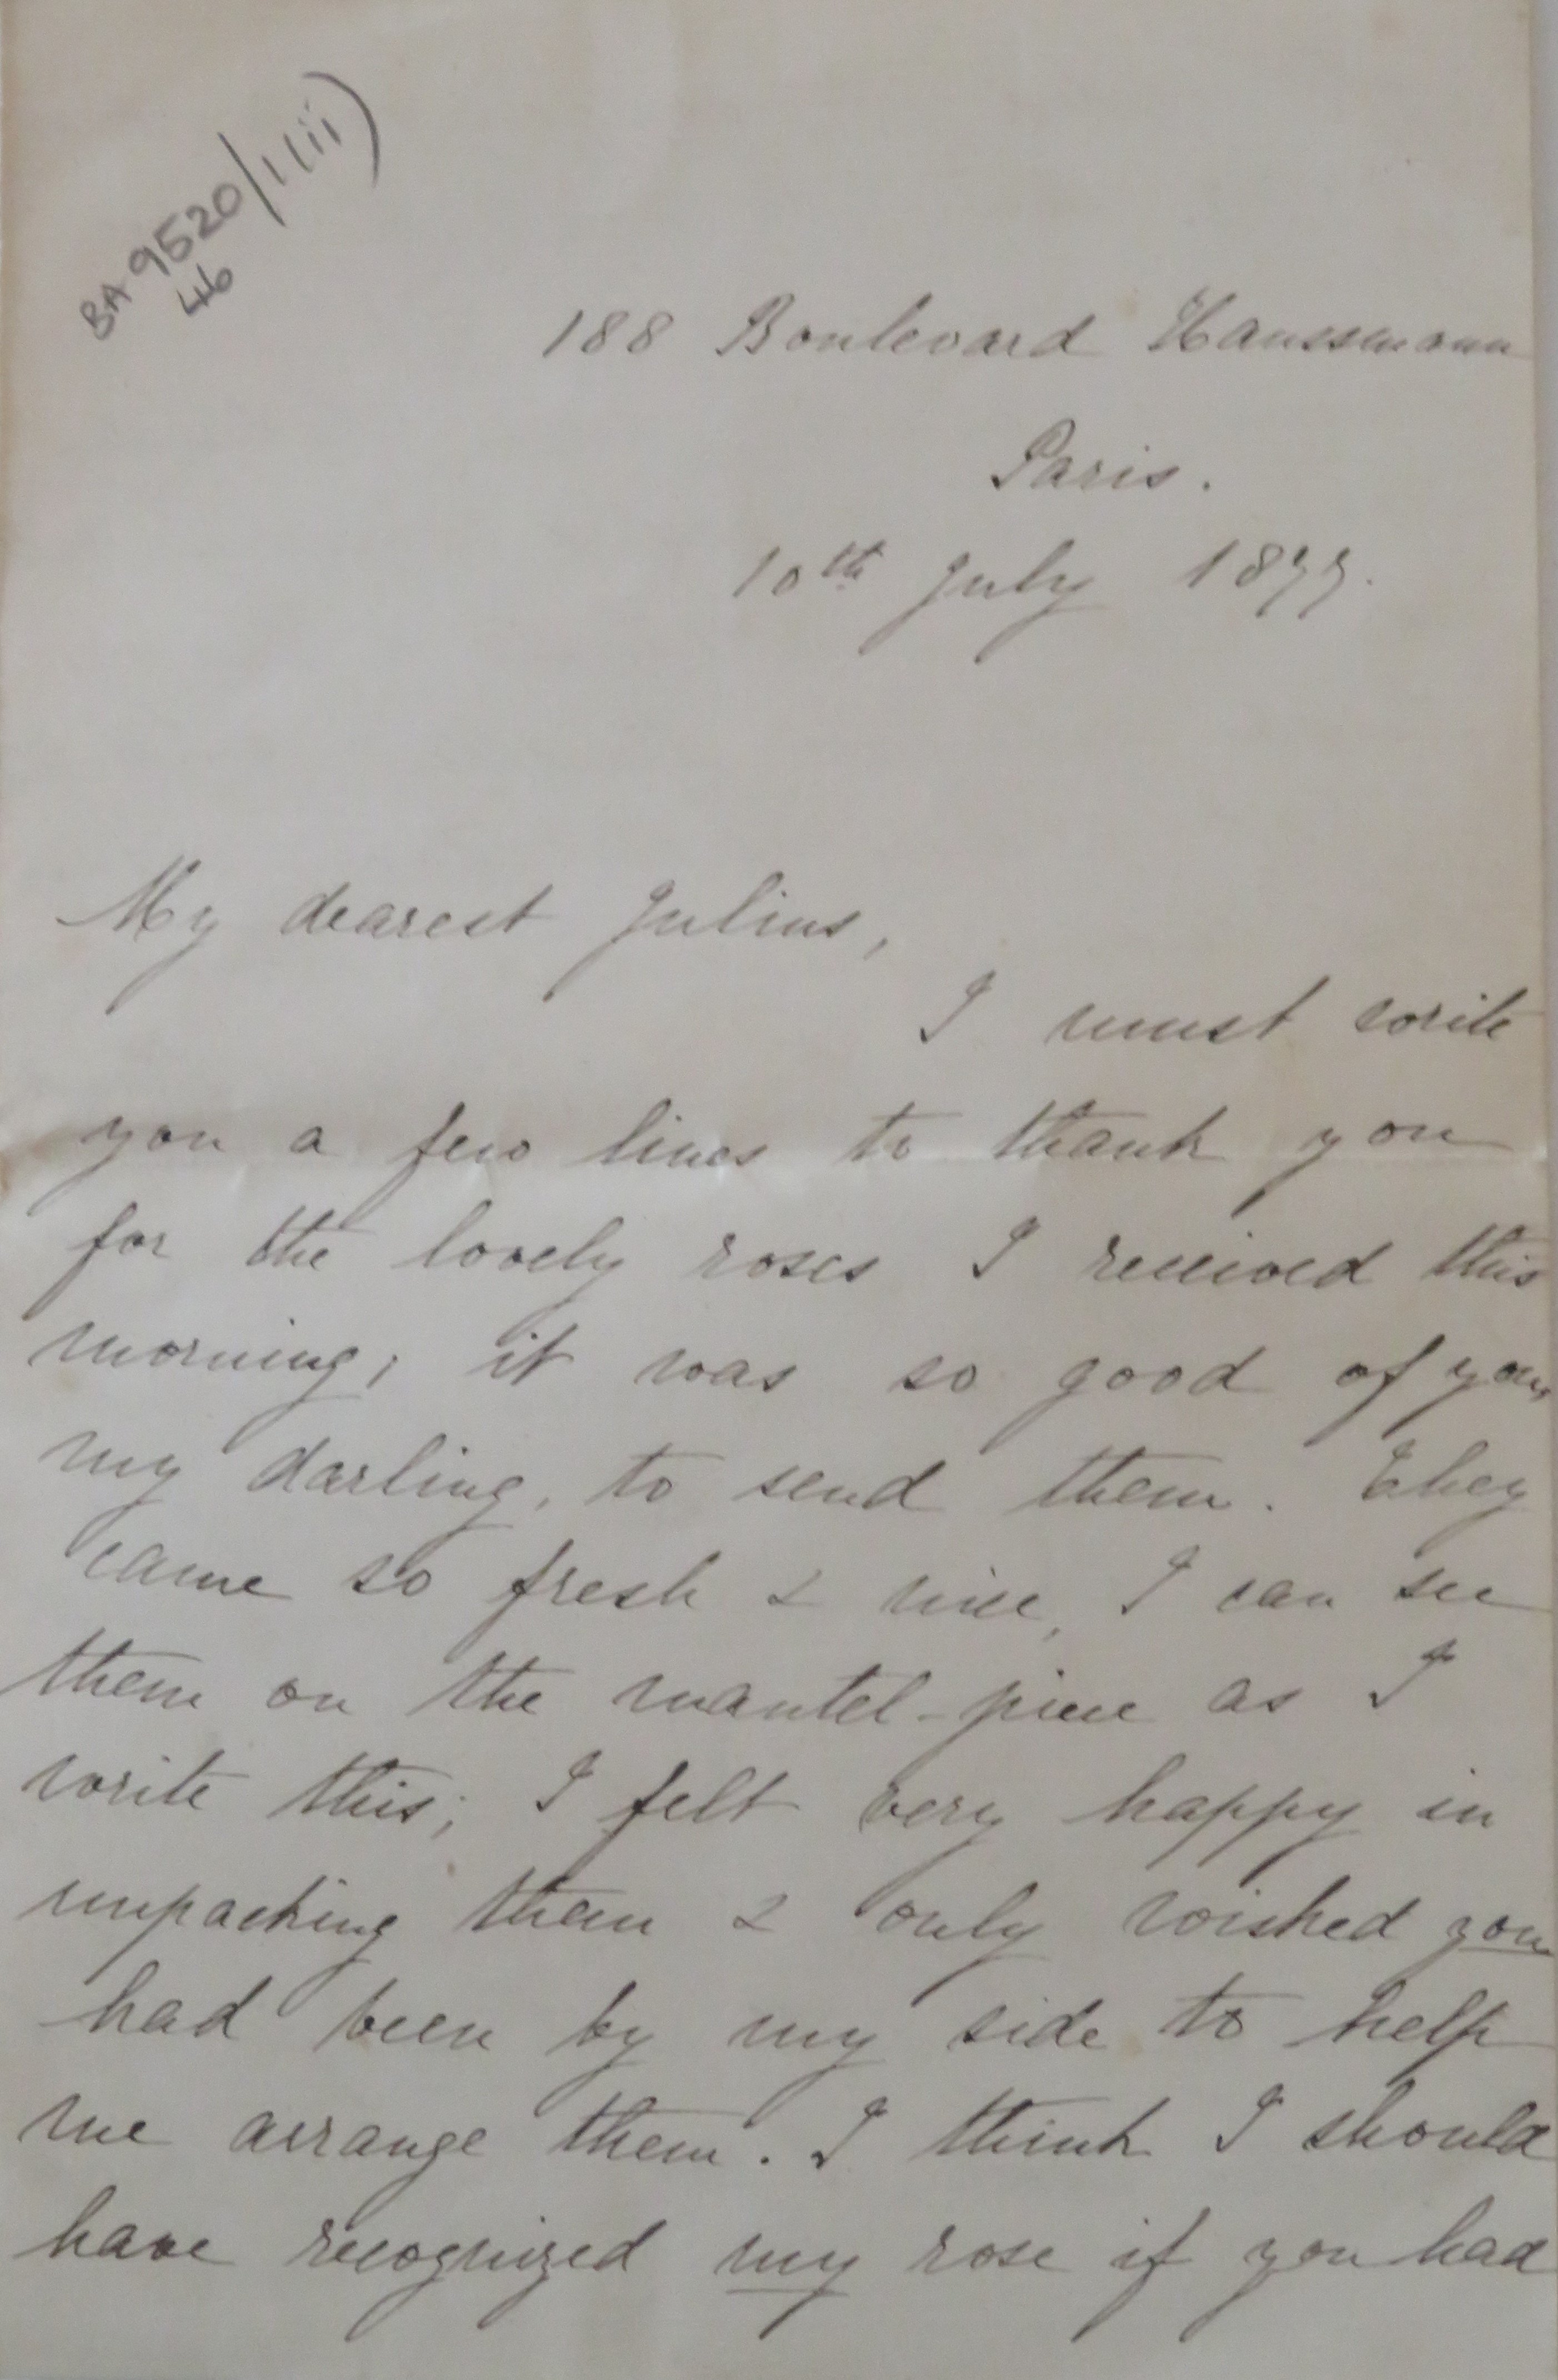 BA 9520/1(ii)
46
188 Boulevard Haussmann
Paris.
10th July 1877.
My dearest Julius,
I must write
you a few lines to thank you
for the lovely roses I received this
morning; it was so good of you,
my darling, to send them. They
came so fresh & nice, I can see
them on the mantel-piece as I
write this; I felt very happy in
unpacking them & only wished you
had been by my side to help
me arrange them. I think I should
have recognized my rose if you had